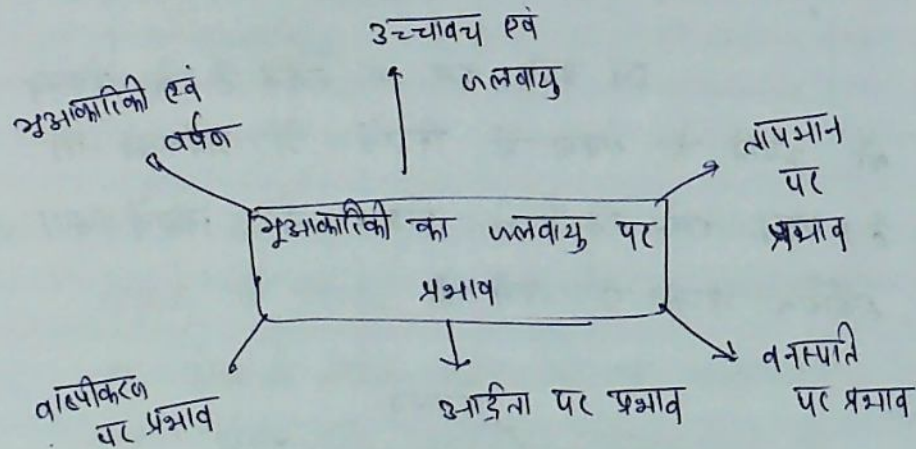 उच्चावच एवं
जलवायु
भूआकारिकी एवं
वर्षण
तापमान
पर
प्रभाव
भूआकारिकी का जलवायु पर
प्रभाव
वाष्पीकरण
पर प्रभाव
आर्द्रता पर प्रभाव
वनस्पति
पर प्रभाव